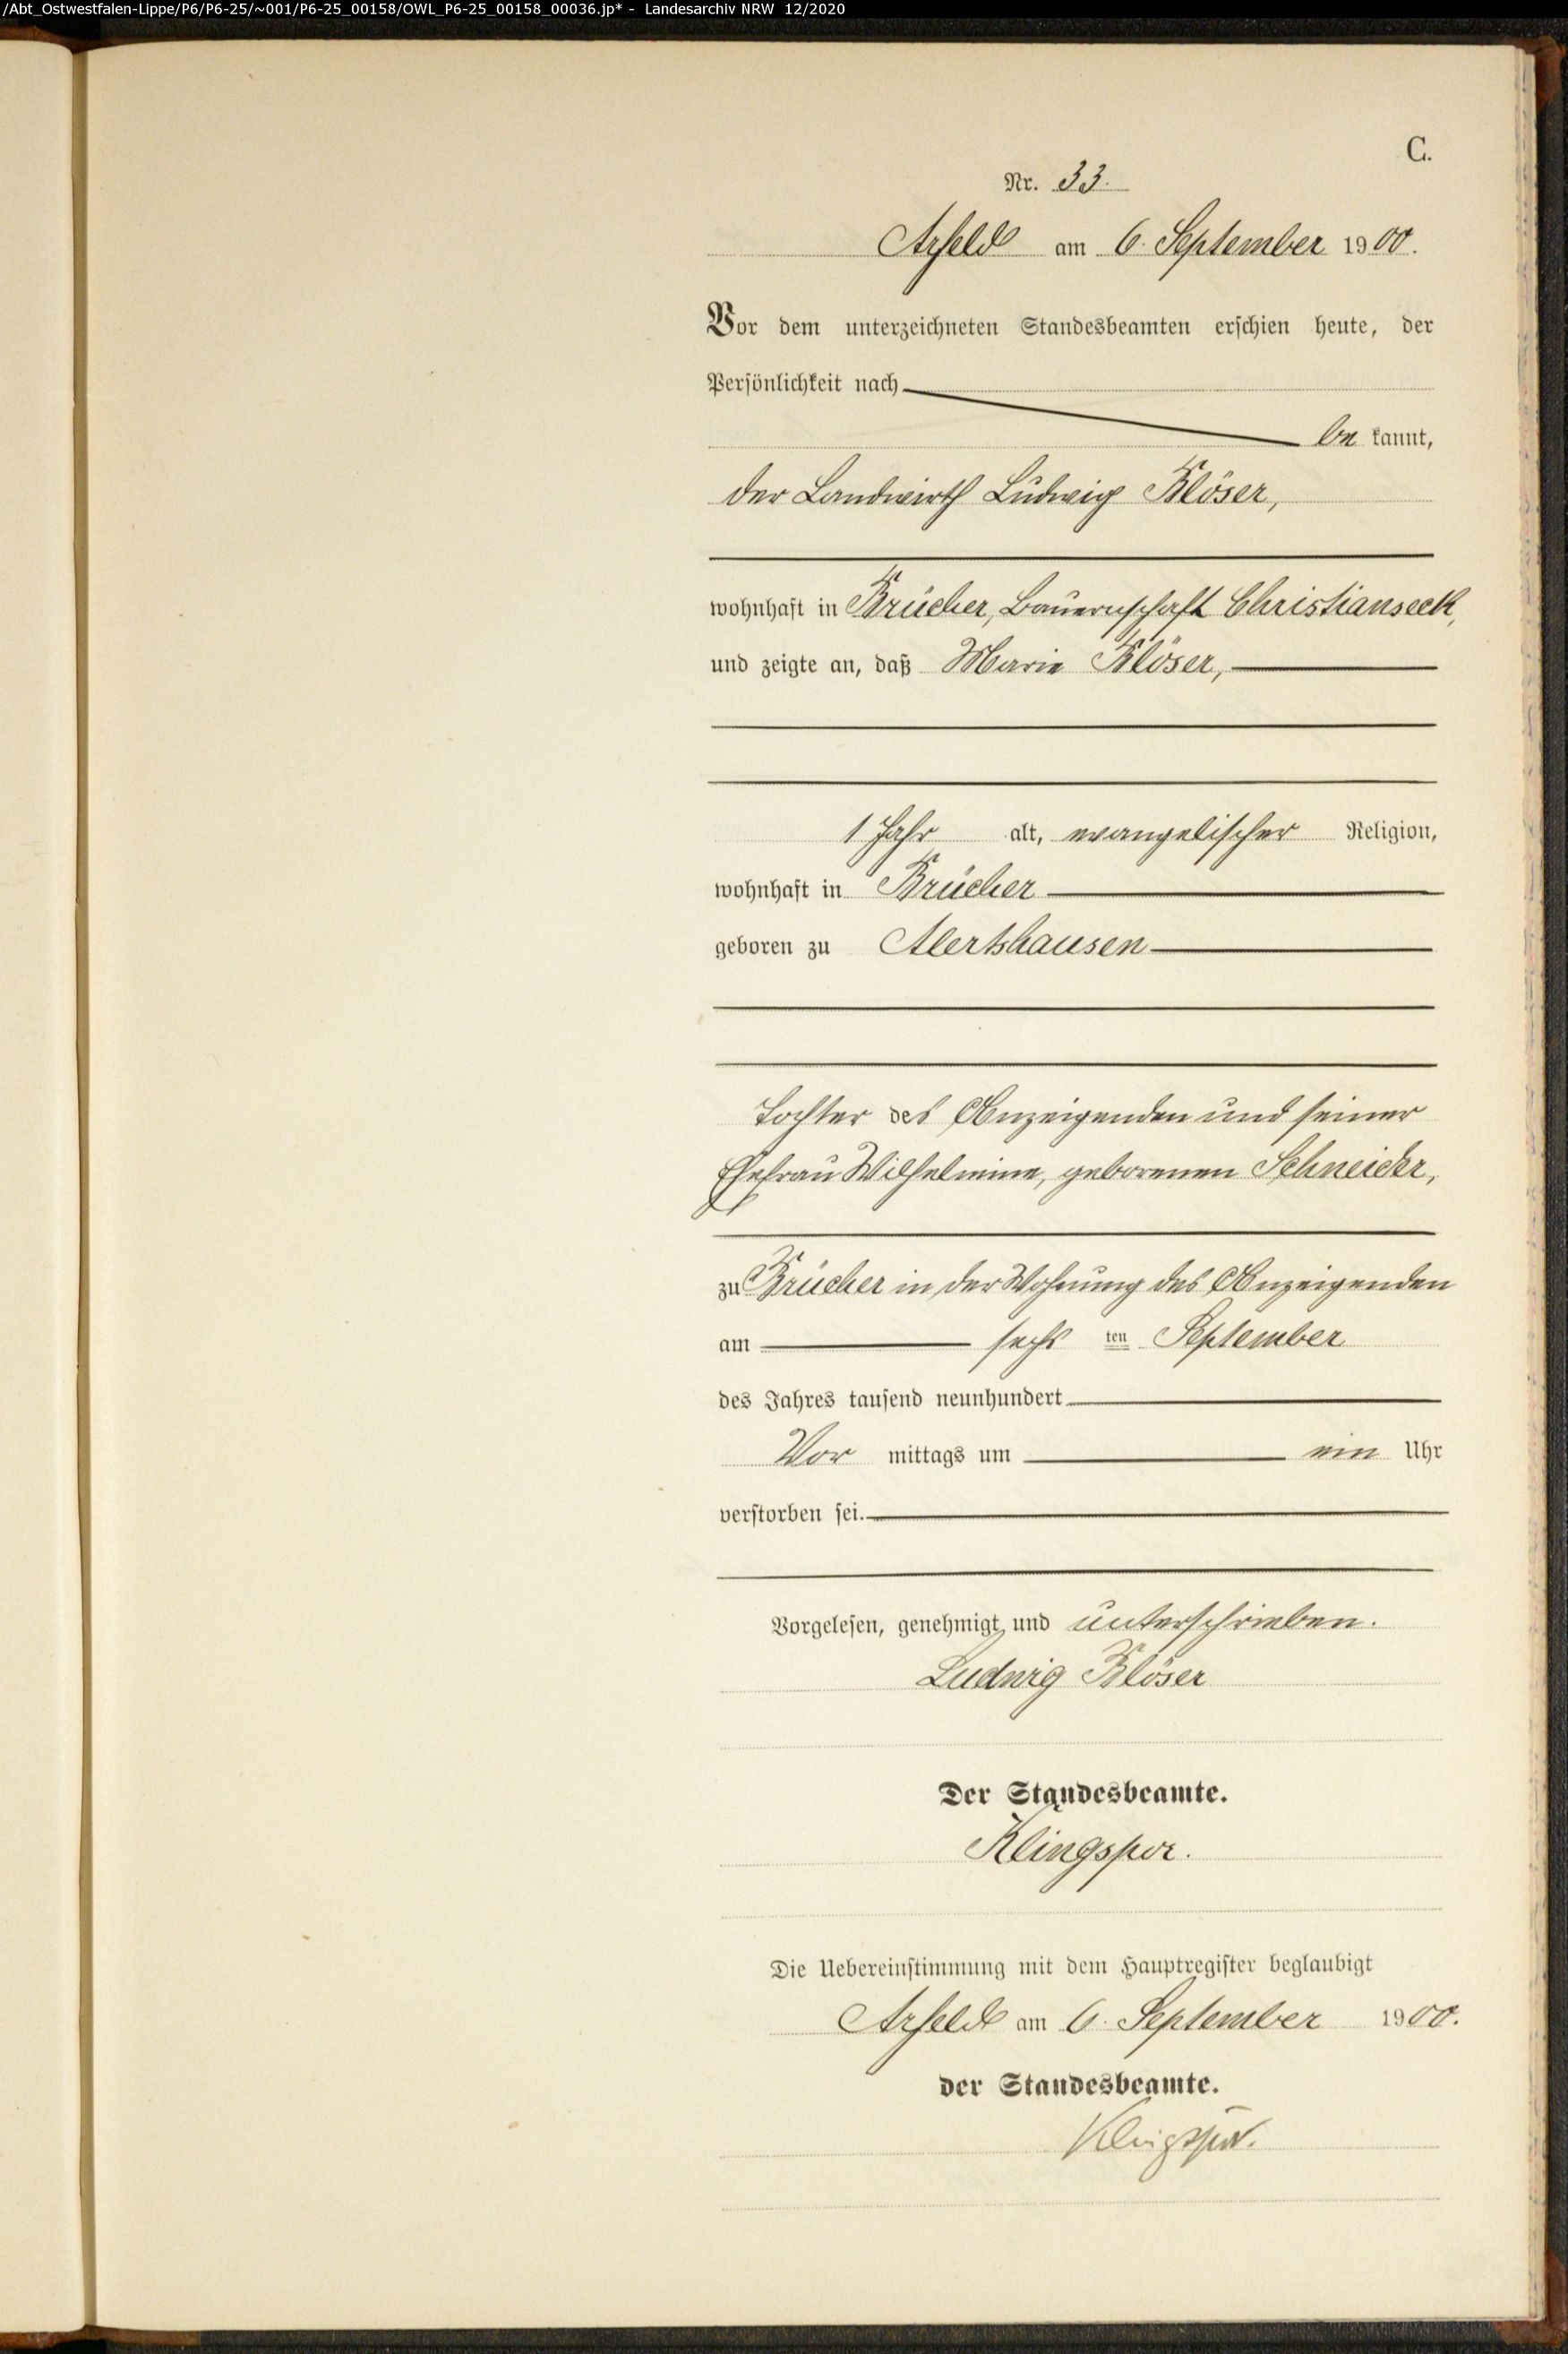 /Abt_Ostwestfalen-Lippe/P6/P6-25/~001/P6-25_00158/OWL_P6-25_00158_00036.jp* - Landesarchiv NRW 12/2020
C.
Nr. 33.
Arfeld am 6. September 1900.
Vor dem unterzeichneten Standesbeamten erschien heute, der
Persönlichkeit nach
be kannt,
der Landwirth Ludwig Klöser,
wohnhaft in Brücher, Bauernschaft Christianseck,
und zeigte an, daß Marie Klöser,
1 Jahr alt, evangelischer Religion,
wohnhaft in Brücher
geboren zu Alertshausen
Tochter des Anzeigenden und seiner
Ehefrau Wilhelmine, geborenen Schneider,
zu Brücher in der Wohnung des Anzeigenden
am sechs ten September
des Jahres tausend neunhundert
Vor mittags um ein Uhr
verstorben sei.
Vorgelesen, genehmigt und unterschrieben.
Ludwig Klöser
Der Standesbeamte.
Klingspor.
Die Uebereinstimmung mit dem Hauptregister beglaubigt
Arfeld am 6. September 1900.
der Standesbeamte.
Klingspor.